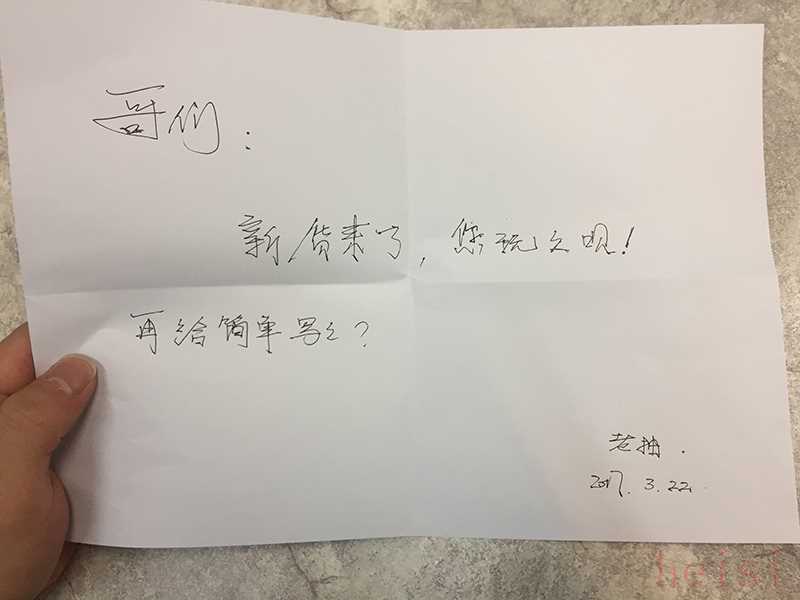 哥们：
新货来了，您玩之呗！
再给简单写之？
老抽.
2017.3.22.
heisi